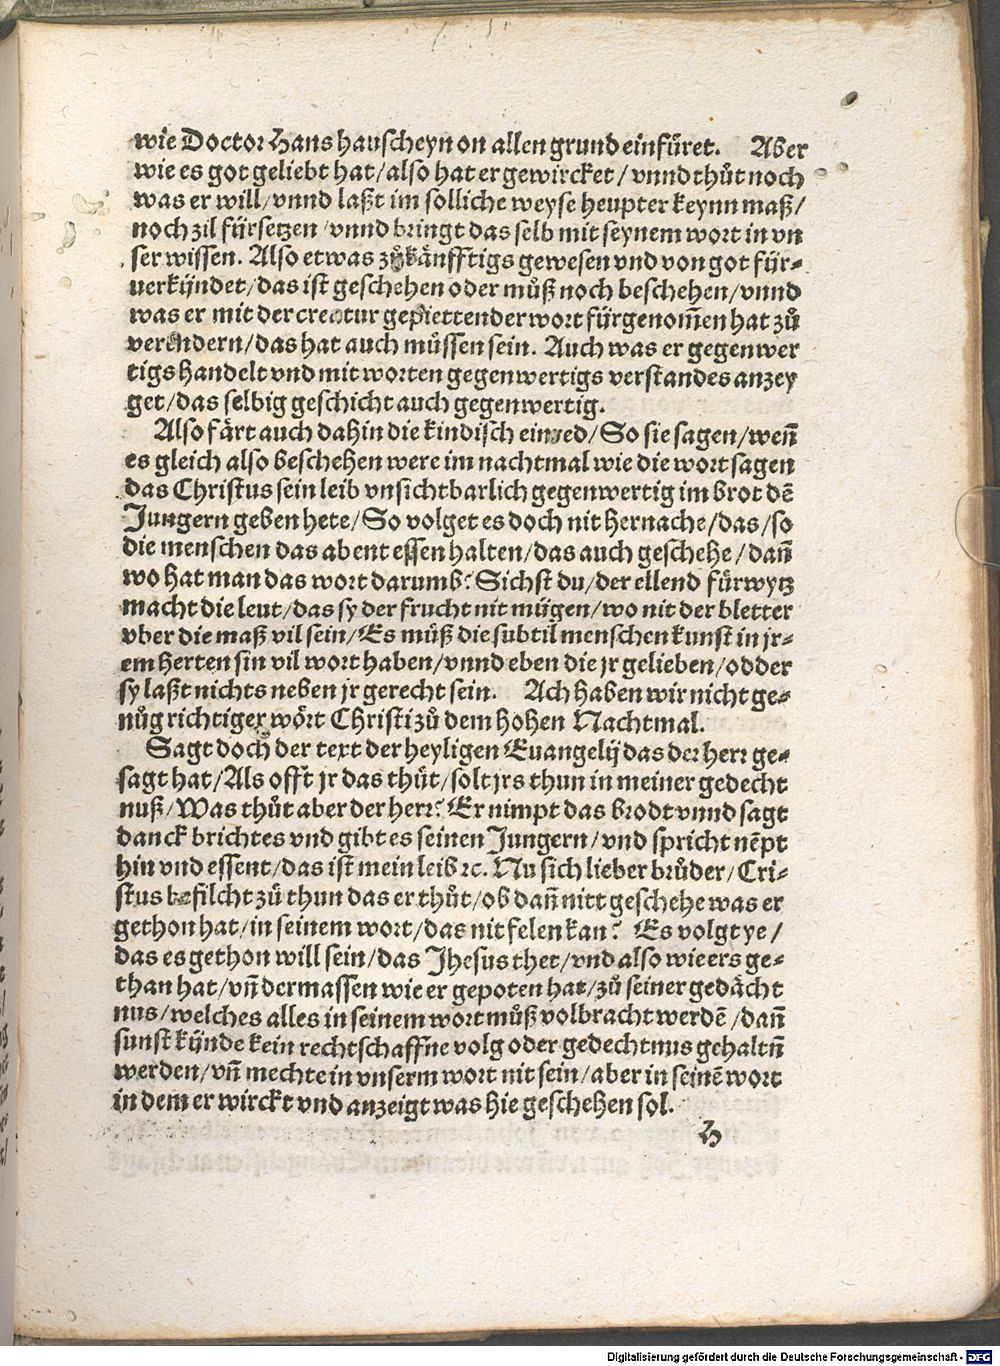 wie Doctor Hans hauscheyn on allen grund einfüret. Aber
wie es got geliebt hat/also hat er gewircket/vnnd thůt noch
was er will/vnnd laßt im solliche weyse heupter keynn maß/
noch zil fürsetzen/vnnd bringt das selb mit seynem wort in vn
ser wissen. Also etwas zůkänfftigs gewesen vnd von got für-
verkündet/das ist geschehen oder můß noch beschehen/vnnd
was er mit der creatur gepiettender wort fürgenom̃en hat zů
verendern/das hat auch můssen sein. Auch was er gegenwer
tigs handelt vnd mit worten gegenwertigs verstandes anzey
get/das selbig geschicht auch gegenwertig.
Also färt auch dahin die kindisch einred/So sie sagen/weñ
es gleich also beschehen were im nachtmal wie die wort sagen
das Christus sein leib vnsichtbarlich gegenwertig im brot dē
Jungern geben hete/So volget es doch nit hernache/das/so
die menschen das abent essen halten/das auch geschehe/dañ
wo hat man das wort darumb? Sichst du/der ellend fürwytz
macht die leut/das sy der frucht nit mügen/wo nit der bletter
vber die maß vil sein/Es můß die subtil menschen kunst in jr-
em herten sin vil wort haben/vnnd eben die jr gelieben/odder
sy laßt nichts neben jr gerecht sein. Ach haben wir nicht ge-
nůg richtiger wört Christi zů dem hohen Nachtmal.
Sagt doch der text der heyligen Euangelij das der herr ge-
sagt hat/Als offt jr das thüt/solt jrs thun in meiner gedecht
nuß/Was thůt aber der herr? Er nimpt das brodt vnnd sagt
danck brichtes vnd gibt es seinen Jungern/vnd spricht nēpt
hin vnd essent/das ist mein leib ꝛc. Nu sich lieber brůder/Cri-
stus befilcht zů thun das er thůt/ob dañ nitt geschehe was er
gethon hat/in seinem wort/das nit felen kan? Es volgt ye/
das es gethon will sein/das Jhesus thet/vnd also wie ers ge-
than hat/vñ dermassen wie er gepoten hat/zů seiner gedächt
nus/welches alles in seinem wort můß volbracht werdē/dañ
sunst künde kein rechtschaffne volg oder gedechtnus gehaltñ
werden/vñ mechte in vnserm wort nit sein/aber in seinē wort
in dem er wirckt vnd anzeigt was hie geschehen sol.
H
Digitalisierung gefördert durch die Deutsche Forschungsgemeinschaft - DFG